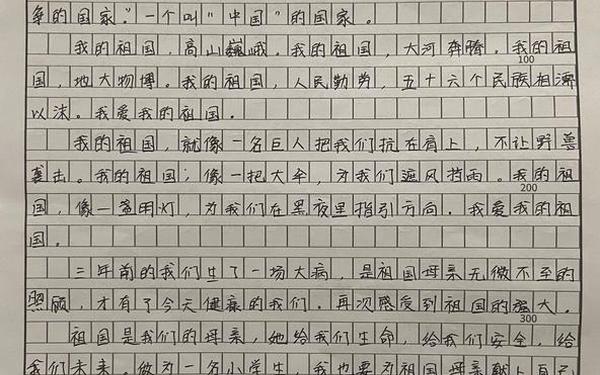 争的国家。”一个叫“中国”的国家。
我的祖国，高山巍峨。我的祖国，大河奔腾。我的祖
100
国，地大物博。我的祖国，人民勤劳，五十六个民族相濡
以沫。我爱我的祖国。
我的祖国，就像一名巨人把我们抗在肩上，不让野兽
袭击。我的祖国；像一把大伞，为我们遮风挡雨。我的祖
200
国，像一盏明灯，为我们在黑夜里指引方向。我爱我的祖
国。
三年前的我们生了一场大病，是祖国母亲无微不至的
照顾，才有了今天健康的我们。再次感受到祖国的强大。
300
祖国是我们的母亲，她给我们生命，给我们安全，给
我们未来。做为一名小学生，我也要为祖国母亲献上自己